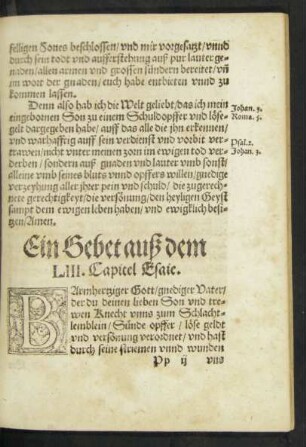 felligen Zones beschlossen/ vnd mir vorgesatzt/ vnnd
durch sein todt vnd aufferstehung auß pur lauter ge-
naden/ allen armen vnd grossen sündern bereitet/ vñ
im wort der gnaden/ euch habe entbieten vnnd zů
kommen lassen.
Denn also hab ich die Welt geliebt/ das ich mein
eingebornen Son zu einem Schuldopffer vnd löse-
gelt dargegeben habe/ auff das alle die jhn erkennen/
vnd warhafftig auff sein verdienst vnd vorbit ver-
trawen/ nicht vnter meinem zorn im ewigen tod ver-
derben/ sondern auß gnaden vnd lauter vmb sonst/
alleine vmb seines bluts vnnd opffers willen/ gnedige
verzeyhung aller jhrer pein vnd schuld/ die zugerech-
nete gerechtigkeyt/ die versönung/ den heyligen Geyst
sampt dem ewigen leben haben/ vnd ewigklich besi-
tzen/ Amen.
Johan. 3.
Roma. 3.
Psal. 2.
Johan. 3.
Ein Gebet auß dem
LIII. Capitel Esaie.
BArmhertziger Gott/ gnediger Vater/
der du deinen lieben Son vnd tre-
wen Knecht vnns zum Schlacht-
lemblein/ Sünde opffer/ löse geldt
vnd versönung verordnet/ vnd hast
durch seine striemen vnnd wunden
Pp ij
vns